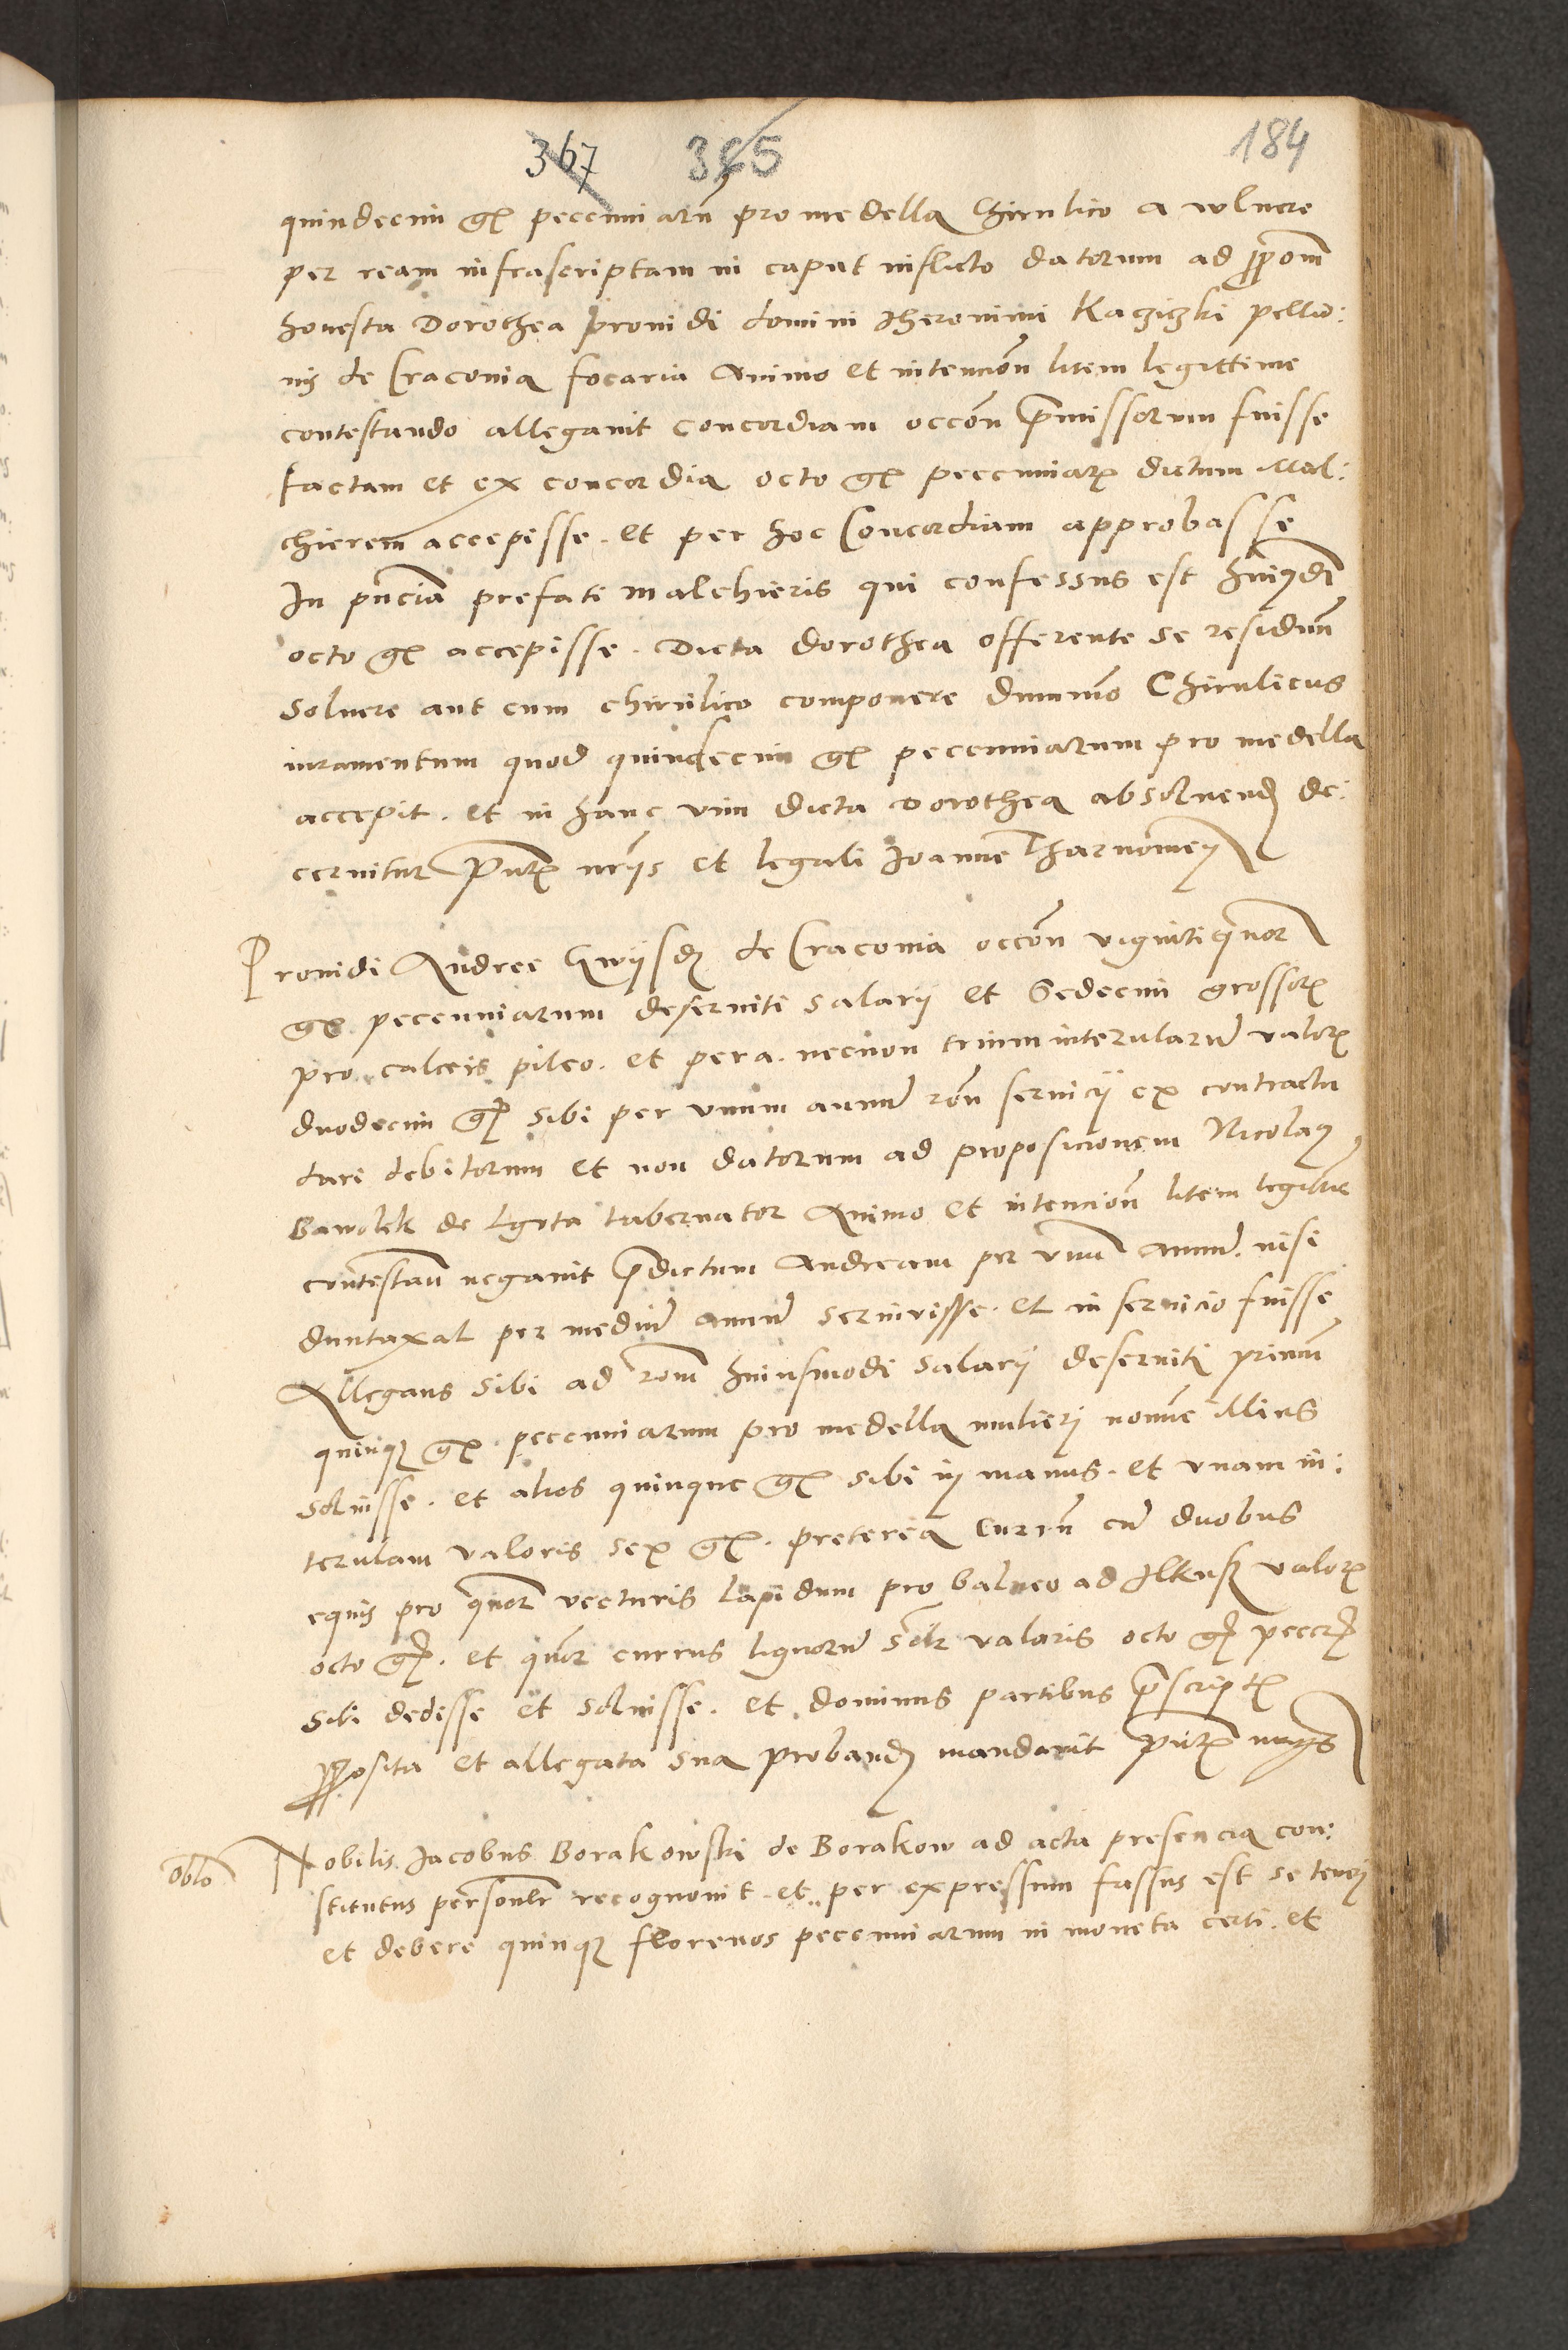 367 365 184
quindecim gr pecuniarū pro medella Chirulico a wlnere
per ream infrascriptam in caput inflicto datorum ad ppom̄
honesta Dorothea providi domini Iheronimi Kacziczki pellio:
nis de Craconia focaria Animo et intencioñ litem legittime
contestando allegauit concordiam occoñ pmissorum fuisse
factam et ex concordia octo gr peccuniarꝫ dictum Mal:
chierem accepisse. et per hoc Concordiam approbasse
In pñcia prefati malchieris qui confessus est huiꝯdi
octo gr accepisse. Dicta dorothea offerente se residuū
soluere aut cum chirulico componere dummō Chirulicus
iuramentum quod quindecim gr peccuniarum pro medella
accepit. et in hanc vim dicta Dorothea absoluendꝫ de:
cernitur Pntꝫ nrys et legali Joanne Tharnowey
Prouidi Andree de Craconia occoñ vigintiquor
gr peccuniarum deserviti salarij et Sedecim grossorꝫ
pro calceis pileo. et pera. necnon trium interularū valorꝫ
duodecim gr sibi per unum annū roñ seruicij ex contractu
dari debitorum et non datorum ad proposicionem Nicolaꝯ
Bawolek de Lgota tabernator Animo et intencioñ litem legittīe
contestañ negauit pdictum Andream per vnū annū. nisi
duntaxat per mediū annū seruivisse. et in seruicio fuisse
Allegans sibi ad roñ huiusmodi salarij deseruiti primū
quinqꝫ gr. peccuniarum pro medella mulieri nomīe
soluisse. et alios quinque gr sibi in manus. et vnam in:
terulam valoris sex gr. preterea currū cū duobus
equis pro quor vecturis lapidum pro balneo ad Ilkusz valorꝫ
octo gr. et quor currus lignorū silr valoris octo gr peccr
sibi dedisse et soluisse. et dominus partibus pscriptꝫ
pposita et allegata sua probandꝫ mandavit Pntꝫ nrys
oblo Nobilis Jacobus Borakowski de Borakow ad acta presencia con:
stitutus personlr recognouit. et per expressum fassus est se teneri
et debere quinqꝫ florenos peccuniarum in moneta certi. et